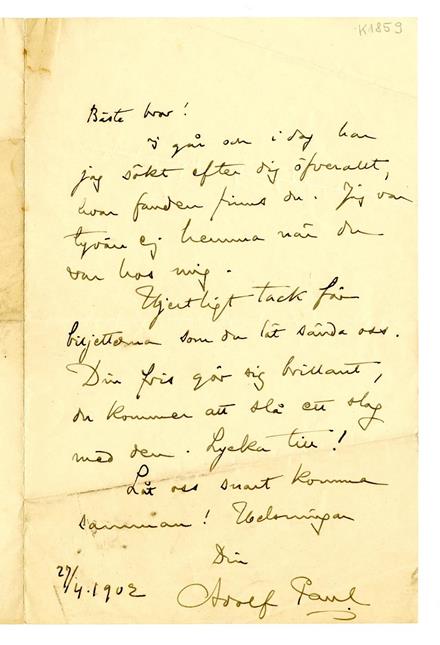 K1859
Bäste bror!
I går och i dag har
jag sökt efter dig öfverallt,
hvar fanden finns du. Jag var
tyvärr ej hemma när du
var hos mig.
Hjertligt tack för
biljetterna som du låt sända oss.
Din fris gör sig brillant,
du kommer att slå ett slag
med den. Lycka till!
Låt oss snart komma
samman! Helsningar
Din
29/4.1902 Adolf Paul